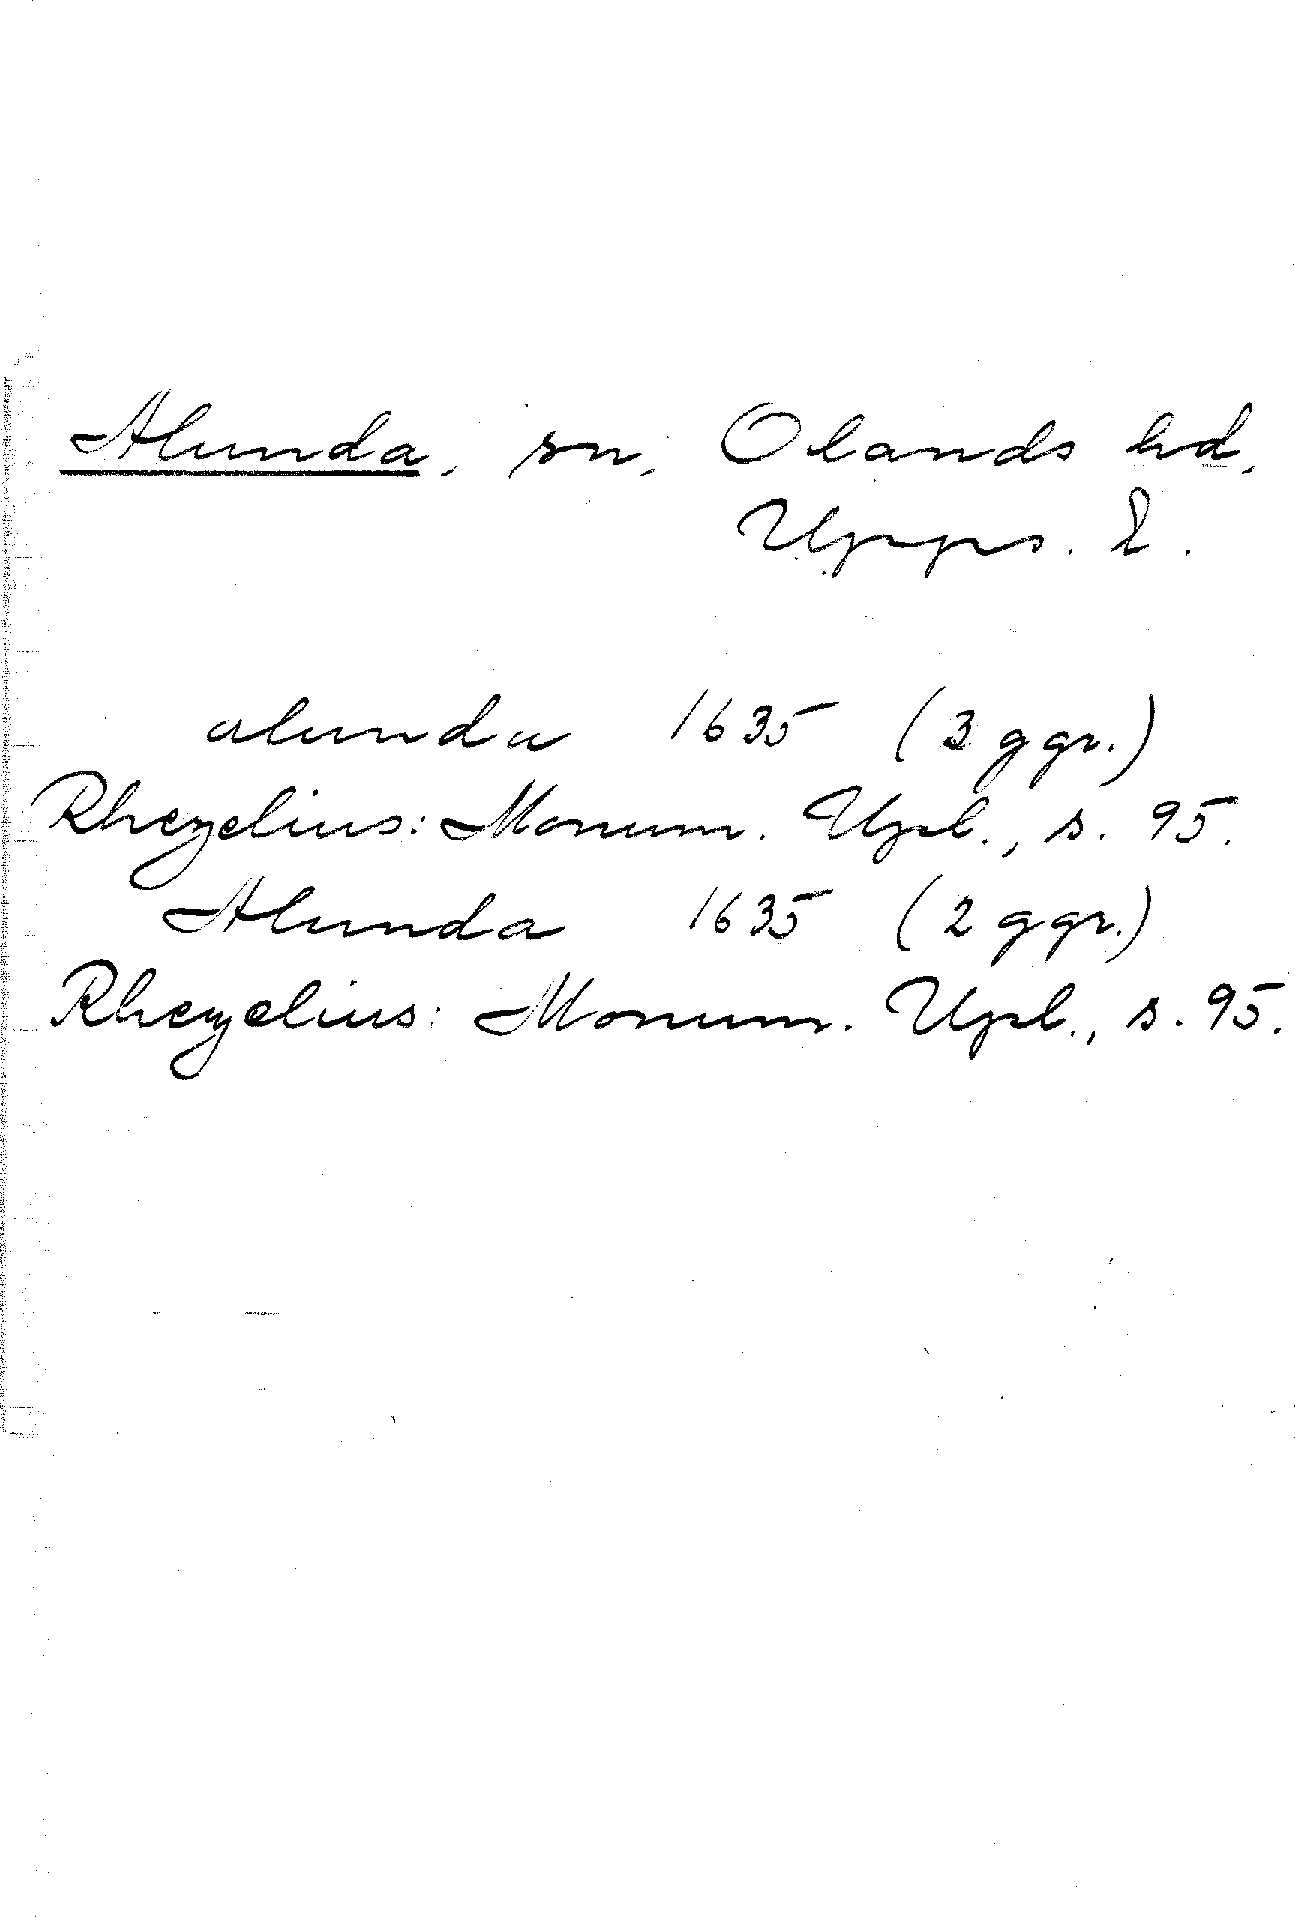 Alunda, sn, Olands hd,
Upps. l.
alunda 1635 (3 ggr.)
Rhezelius: Monum. Upl., s. 95.
Alunda 1635 (2 ggr.)
Rhezelius: Monum. Upl., s. 95.